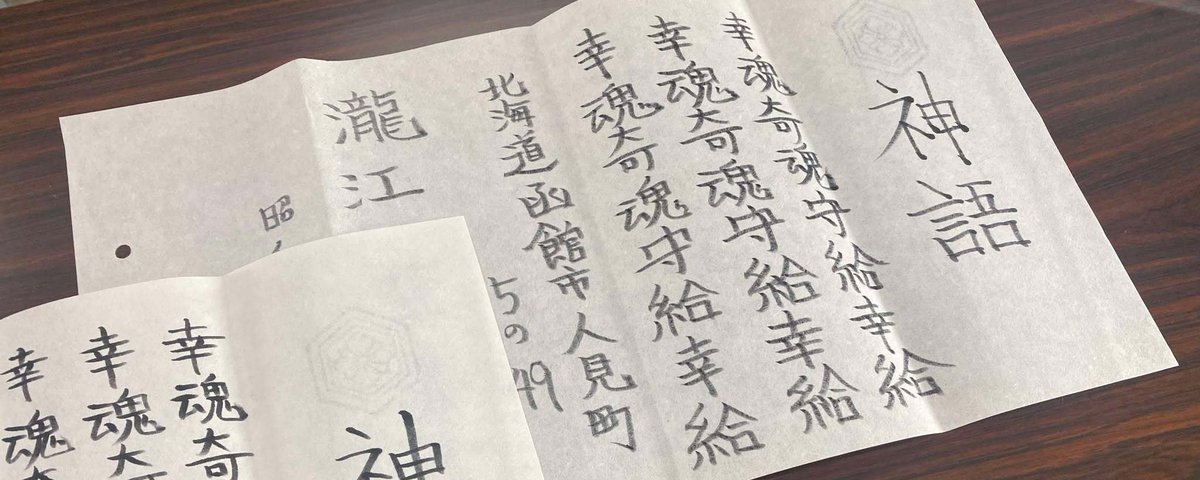 神語
幸魂奇魂守給幸給
幸魂奇魂守給幸給
幸魂奇魂守給幸給
北海道函館市人見町
5の49
瀧江
昭
神
幸魂奇
幸魂
幸魂